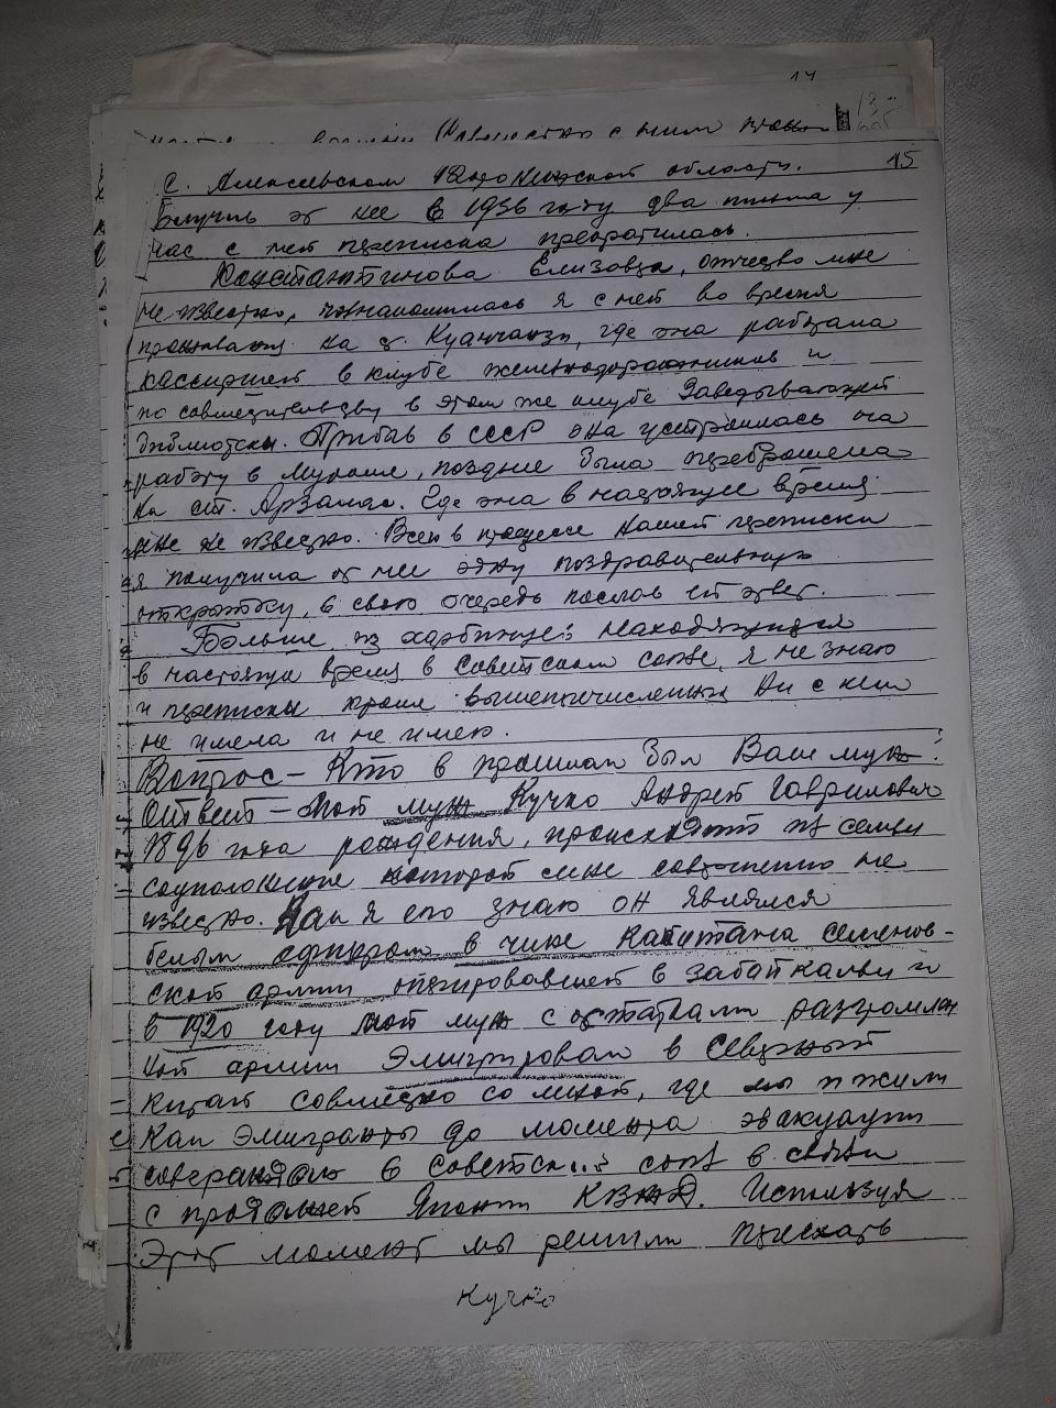 14
с ним
15
с. Алексеевском области.
Получив от нее в 1936 году два письма у
нас с ней переписка прекратилась.
Константинова Елизовета, отчество мне
не известно, познакомилась я с ней во время
проживания на ст. Куанчанзы, где она работала
кассиршей в клубе железнодорожников и
по совместительству в этом же клубе Заведывающей
библиотеки. Прибыв в СССР она устроилась на
работу в Муроме, позднее была переброшена
на ст. Арзамас. Где она в настоящее время
мне не известно. Всего в процессе нашей переписки
я получила от нее одну поздравительную
открытку, в свою очередь послав ей ответ.
Больше из харбинцев находящихся
в настоящее время в Советском союзе, я не знаю
и переписки кроме вышеперечисленных ни с кем
не имела и не имею.
Вопрос – Кто в прошлом был Ваш муж?
Ответ – Мой муж Кучко Андрей Гаврилович
1896 года рождения, происходит из семьи
соцположение которой мне совершенно не
известно. Как я его знаю он являлся
белым офицером в чине капитана семенов-
ской армии оперировавшей в забайкальи и
в 1920 году мой муж с остатками разгромлен
ной армии эмигрировал в Северный
Китай совместно со мной, где мы и жили
как эмигранты до момента эвакуации
совграждан в Советский союз в связи
с продажей Японии КВЖД. Используя
Этот момент мы решили приехать
Кучко